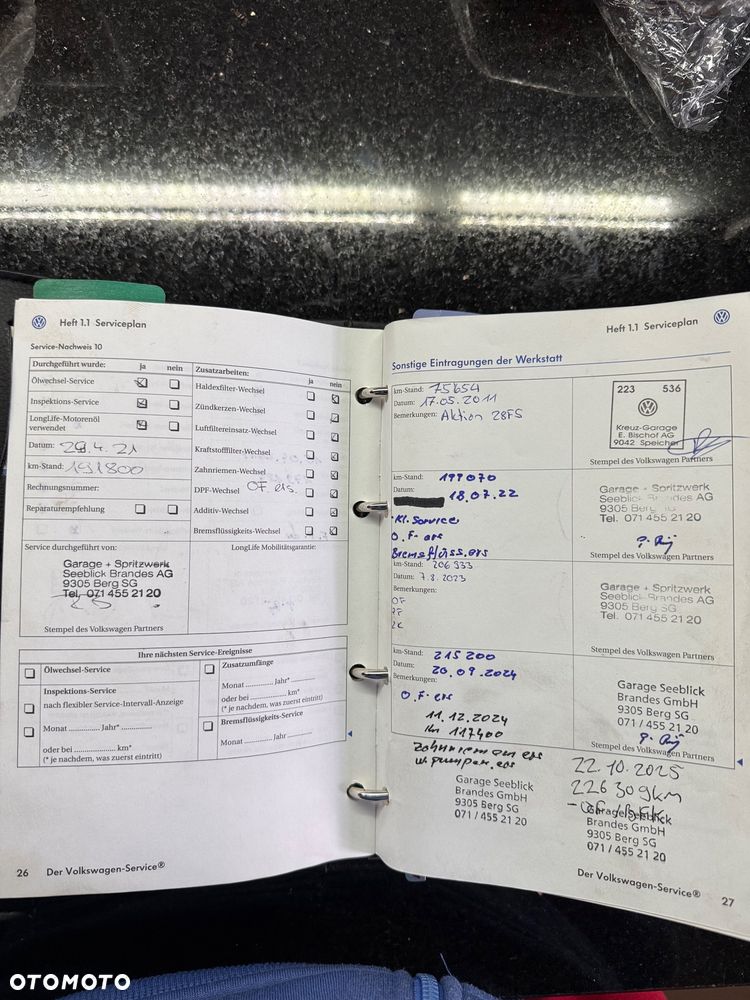 Heft 1.1 Serviceplan
Service-Nachweis 10
Durchgeführt wurde: ja nein
Ölwechsel-Service
Inspektions-Service
LongLife-Motorenöl
verwendet
Datum: 29.4.21
km-Stand: 191800
Rechnungsnummer:
Reparaturempfehlung
Service durchgeführt von:
Garage + Spritzwerk
Seeblick Brandes AG
9305 Berg SG
Tel. 071 455 21 20
Stempel des Volkswagen Partners
Zusatzarbeiten: ja nein
Haldexfilter-Wechsel
Zündkerzen-Wechsel
Luftfiltereinsatz-Wechsel
Kraftstofffilter-Wechsel
Zahnriemen-Wechsel
DPF-Wechsel OF. ers.
Additiv-Wechsel
Bremsflüssigkeits-Wechsel
LongLife Mobilitätsgarantie:
Ihre nächsten Service-Ereignisse
Ölwechsel-Service
Inspektions-Service
nach flexibler Service-Intervall-Anzeige
Monat .............. Jahr* ..............
oder bei ........................ km*
(* je nachdem, was zuerst eintritt)
Zusatzumfänge
Monat .............. Jahr* ..............
oder bei ........................ km*
(* je nachdem, was zuerst eintritt)
Bremsflüssigkeits-Service
Monat .............. Jahr ..............
26 Der Volkswagen-Service®
Heft 1.1 Serviceplan
Sonstige Eintragungen der Werkstatt
km-Stand: 75654
Datum: 17.05.2011
Bemerkungen: Aktion 28F5
223 536
Kreuz-Garage
E. Bischof AG
9042 Speicher
Stempel des Volkswagen Partners
km-Stand: 199070
Datum: 18.07.22
Kl. Service
O.F- ers
Bremsflüss.ers
Garage + Spritzwerk
Seeblick Brandes AG
9305 Berg SG
Tel. 071 455 21 20
Stempel des Volkswagen Partners
km-Stand: 206933
Datum: 7.8.2023
Bemerkungen:
OF
Garage + Spritzwerk
Seeblick Brandes AG
9305 Berg SG
Tel. 071 455 21 20
Stempel des Volkswagen Partners
km-Stand: 215200
Datum: 20.09.2024
Bemerkungen:
O.F- ers
Garage Seeblick
Brandes GmbH
9305 Berg SG
071 / 455 21 20
Stempel des Volkswagen Partners
11.12.2024
km 117400
Zahnriemen ers
w.pumpe.ers
Garage Seeblick
Brandes GmbH
9305 Berg SG
071 / 455 21 20
22.10.2025
226309km
Garage Seeblick
Brandes GmbH
9305 Berg SG
071 / 455 21 20
Der Volkswagen-Service® 27
OTOMOTO